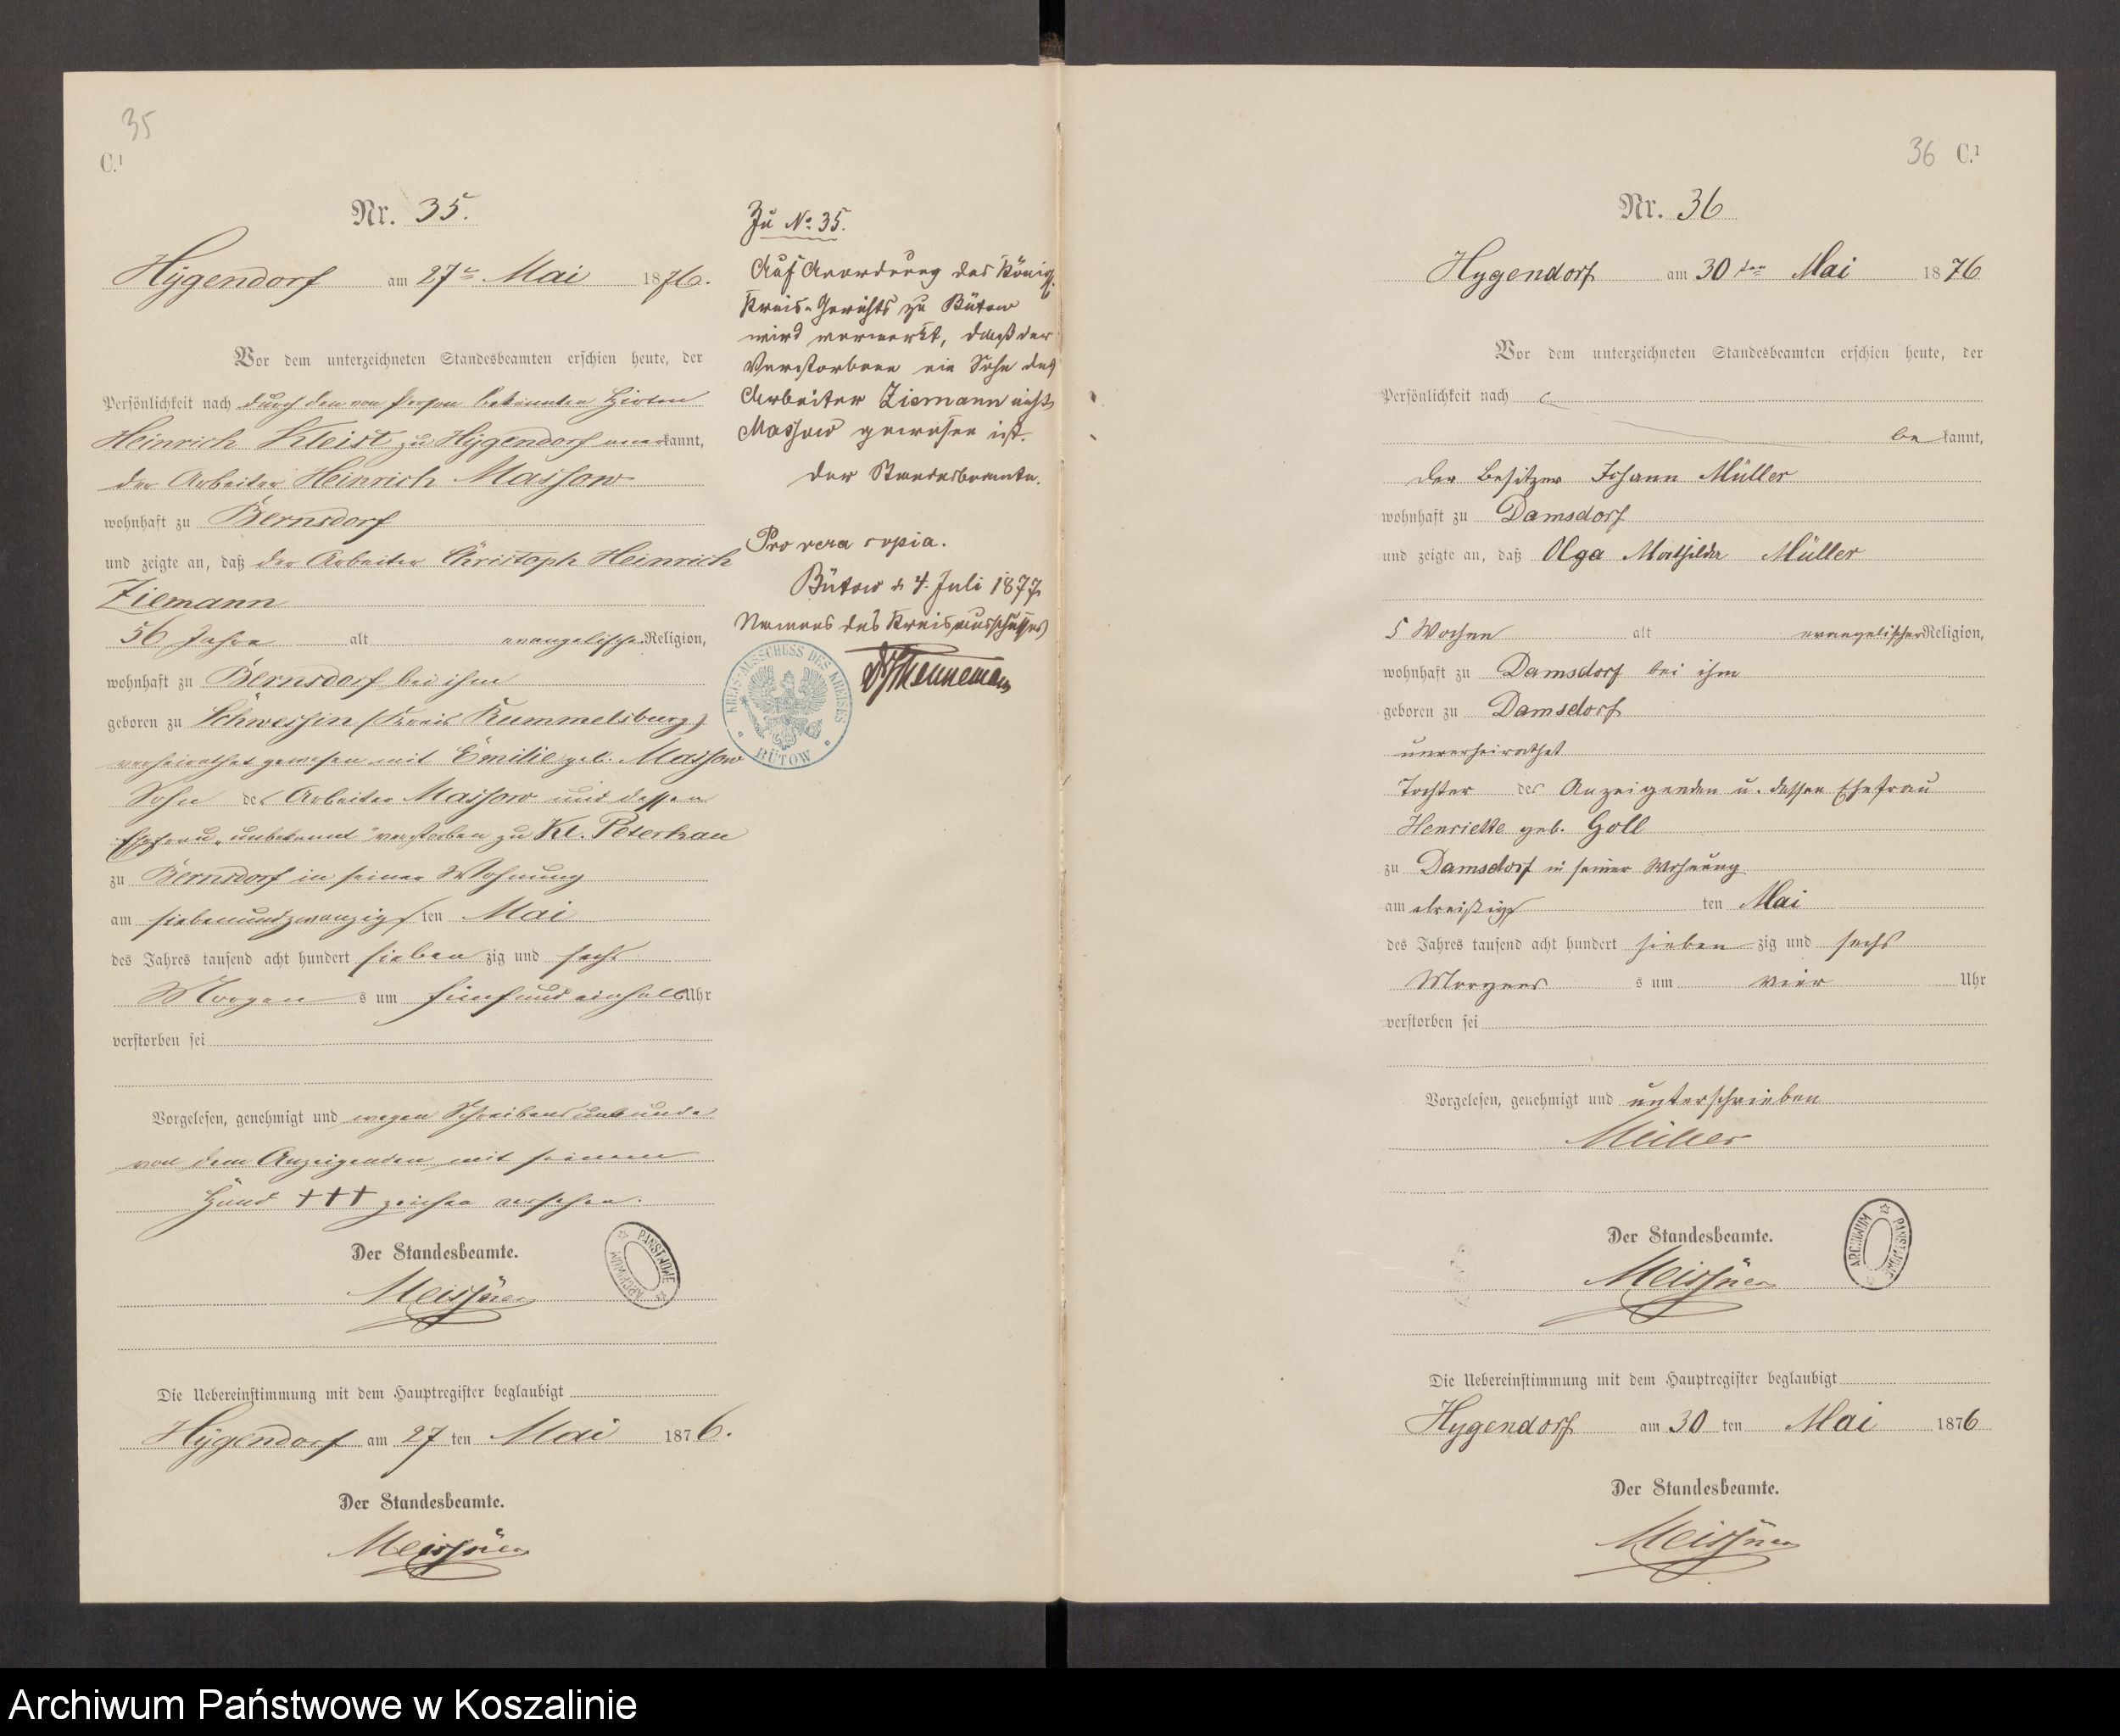 35
C.¹
Nr. 35.
Hygendorf am 27t Mai 1876.
Vor dem unterzeichneten Standesbeamten erschien heute, der
Persönlichkeit nach durch den von Person bekannten Hirten
Heinrich Kleist zu Hygendorf anerkannt,
der Arbeiter Heinrich Massow
wohnhaft zu Bernsdorf
und zeigte an, daß der Arbeiter Christoph Heinrich
Ziemann
56 Jahre alt evangelischer Religion,
wohnhaft zu Bernsdorf bei ihm
geboren zu Schwessin (Kreis Rummelsburg)
verheirathet gewesen mit Emilie geb. Massow
Sohn des Arbeiter Massow und dessen
Ehefrau, unbekannt verstorben zu Kl. Peterkau
zu Bernsdorf in seiner Wohnung
am siebenundzwanzigsten Mai
des Jahres tausend acht hundert siebenzig und sechs
Morgens um fünf und einhalb Uhr
verstorben sei
Vorgelesen, genehmigt und wegen Schreibensunkunde
von dem Anzeigenden mit seinem
Hand +++ zeichen versehen.
Der Standesbeamte.
Meissner
PAŃSTWOWE ARCHIWUM
Die Uebereinstimmung mit dem Hauptregister beglaubigt
Hygendorf am 27 ten Mai 1876.
Der Standesbeamte.
Meissner
Zu No 35.
Auf Anordnung des Königl.
Kreis-Gerichts zu Bütow
wird vermerkt, daß der
Verstorbene ein Sohn des
Arbeiter Ziemann nicht
Massow gewesen ist.
Der Standesbeamte.
Pro vera copia.
Bütow d 4. Juli 1877
Namens des Kreisausschusses
KREIS-AUSSCHUSS DES KREISES BÜTOW
36 C.¹
Nr. 36
Hygendorf am 30 ten Mai 1876
Vor dem unterzeichneten Standesbeamten erschien heute, der
Persönlichkeit nach
bekannt,
der Besitzer Johann Müller
wohnhaft zu Damsdorf
und zeigte an, daß Olga Mathilde Müller
5 Wochen alt evangelischer Religion,
wohnhaft zu Damsdorf bei ihm
geboren zu Damsdorf
unverheirathet
Tochter des Anzeigenden u. dessen Ehefrau
Henriette geb. Goll
zu Damsdorf in seiner Wohnung
am dreißigsten Mai
des Jahres tausend acht hundert siebenzig und sechs
Morgens um vier Uhr
verstorben sei
Vorgelesen, genehmigt und unterschrieben
Müller
Der Standesbeamte.
Meissner
ARCHIWUM PAŃSTWOWE
Die Uebereinstimmung mit dem Hauptregister beglaubigt
Hygendorf am 30 ten Mai 1876
Der Standesbeamte.
Meissner
Archiwum Państwowe w Koszalinie